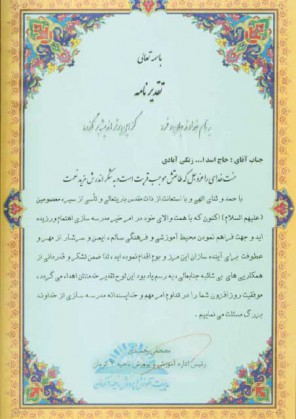 باسمه تعالی
تقدیر نامه
جناب آقای : حاج اسد ا... زنگی آبادی
منت خدای را عز و جل که طاعتش موجب قربت است و به شکر اندرش مزید نعمت
با حمد و ثنای الهی و با استعانت از ذات مقدس باریتعالی و تأسی از سیره معصومین
(علیهم السلام) اکنون که با همت والای خود در امر خیر مدرسه سازی اهتمام ورزیده
اید و جهت فراهم نمودن محیط آموزشی و فرهنگی سالم ، ایمن و سرشار از مهر و
عطوفت برای آینده سازان این مرز و بوم اقدام نموده اید ، لذا ضمن تشکر و قدردانی از
همکاریهای بی شائبه جنابعالی ، به رسم یاد بود این لوح تقدیر خدمتتان اهداء می گردد ،
موفقیت روز افزون شما را در تداوم امر مهم و خداپسندانه مدرسه سازی از خداوند
بزرگ مسئلت می نماییم .
رئیس اداره آموزش و پرورش ناحیه ۲ کرمان